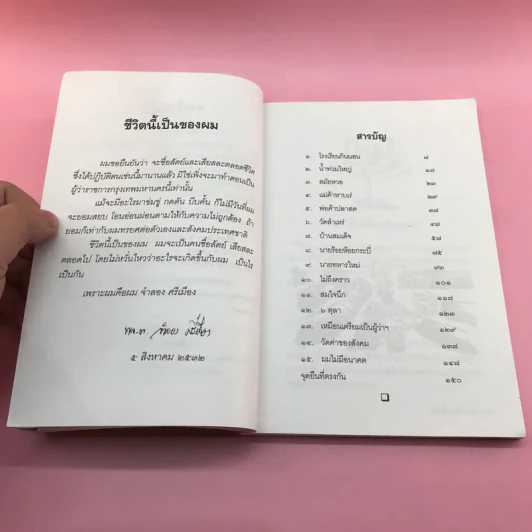 ชีวิตนี้เป็นของผม
ผมขอยืนยันว่า จะซื่อสัตย์และเสียสละตลอดชีวิต
ซึ่งได้ปฏิบัติตนเช่นนี้มานานแล้ว มิใช่เพิ่งจะมาทำตอนเป็น
ผู้ว่าราชการกรุงเทพมหานครนี้เท่านั้น
แม้จะมีอะไรมาข่มขู่ กดดัน บีบคั้น ก็ไม่มีวันที่ผม
จะยอมสยบ โอนอ่อนผ่อนตามให้กับความไม่ถูกต้อง ถ้า
ยอมก็เท่ากับผมทรยศต่อตัวเองและสังคมประเทศชาติ
ชีวิตนี้เป็นของผม ผมจะเป็นคนซื่อสัตย์ เสียสละ
ตลอดไป โดยไม่หวั่นไหวว่าอะไรจะเกิดขึ้นกับผม เป็นไร
เป็นกัน
เพราะผมคือผม จำลอง ศรีเมือง
๕ สิงหาคม ๒๕๓๒
สารบัญ
๑. โรงเรียนกินนอน ๗
๒. น้ำท่วมใหญ่ ๑๗
๓. สมัยหวอ ๒๓
๔. แม่ค้าหาบเร่ ๒๙
๕. พ่อค้าปลาสด ๓๗
๖. วัดสำเหร่ ๔๗
๗. บ้านสมเด็จ ๕๗
๘. นายร้อยห้อยกระบี่ ๗๕
๙. นายทหารใหม่ ๙๓
๑๐. ไม่ถึงคราว ๑๐๑
๑๑. สมใจนึก ๑๑๗
๑๒. ๖ ตุลา ๑๒๓
๑๓. เหมือนเตรียมเป็นผู้ว่าฯ ๑๒๙
๑๔. วัดค่าของสังคม ๑๓๗
๑๕. ผมไม่มีอนาคต ๑๔๗
จุดยืนที่ตรงกัน ๑๕๐